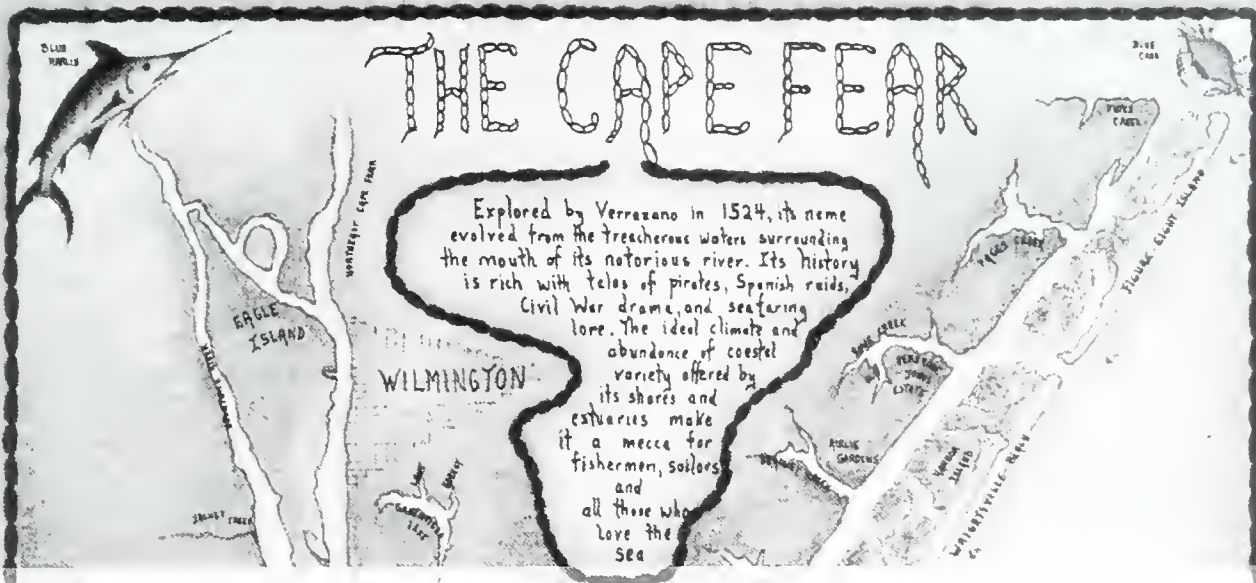 THE CAPE FEAR
BLUE
MARLIN
BLUE
CRAB
Explored by Verrazano in 1524, its name
evolved from the treacherous waters surrounding
the mouth of its notorious river. Its history
is rich with tales of pirates, Spanish raids,
Civil War drama, and seafaring
lore. The ideal climate and
abundance of coastal
variety offered by
its shores and
estuaries make
it a mecca for
fishermen, sailors
and
all those who
love the
sea
NORTHEAST CAPE FEAR
EAGLE
ISLAND
WILMINGTON
GREENFIELD
LAKE
CREEK
FIGURE EIGHT ISLAND
PAGES CREEK
CREEK
ESTATE
AIRLIE
GARDENS
HARBOR
ISLAND
WRIGHTSVILLE BEACH